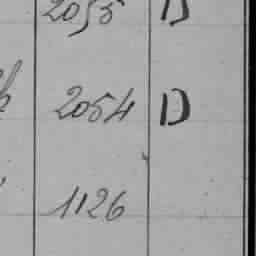 2055 D
2054 D
1126